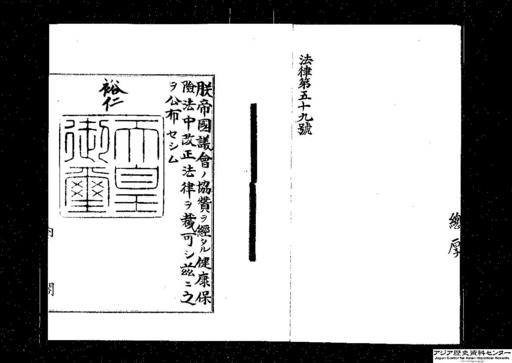 總厚
法律第五十九號
朕帝國議會ノ協賛ヲ經タル健康保
險法中改正法律ヲ裁可シ茲ニ之
ヲ公布セシム
裕仁
天皇
御璽
内閣
アジア歴史資料センター
Japan Center for Asian Historical Records